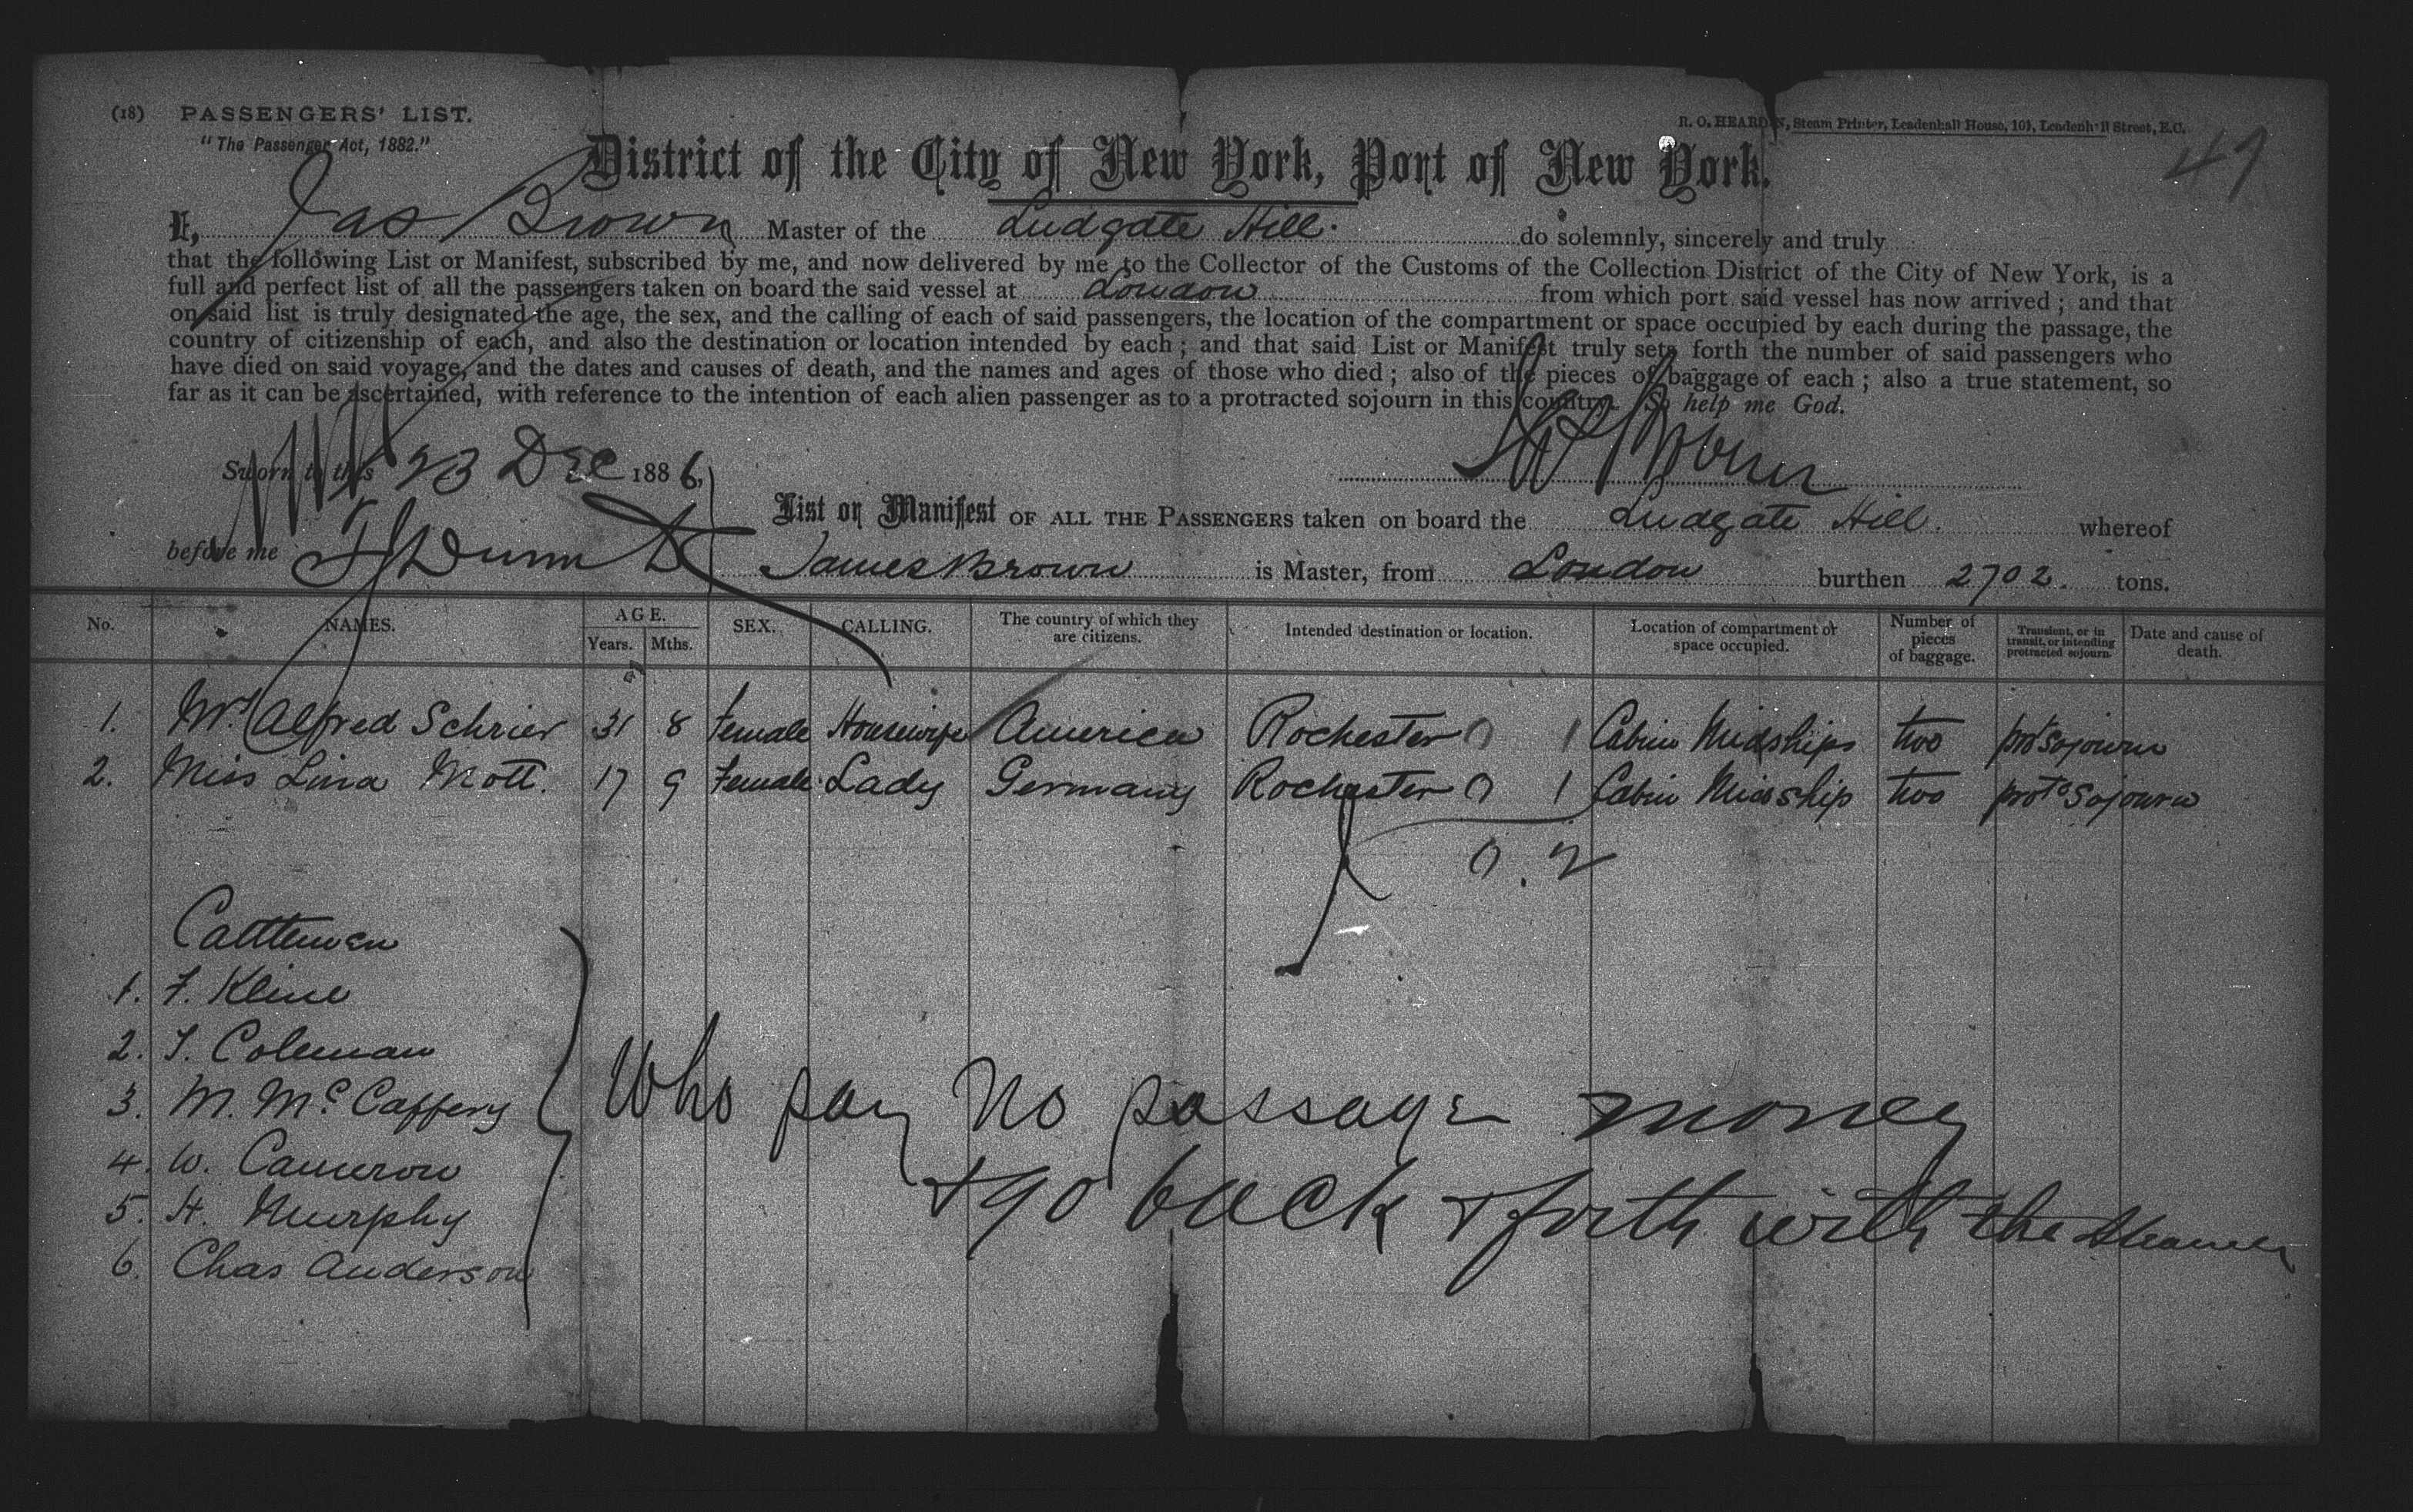 (18) PASSENGERS' LIST.
"The Passenger Act, 1882."
R. O. HEARDEN, Steam Printer, Leadenhall House, 101, Leadenhall Street, E.C.
49
District of the City of New York, Port of New York.
I, Jas Brown Master of the Ludgate Hill. do solemnly, sincerely and truly
that the following List or Manifest, subscribed by me, and now delivered by me to the Collector of the Customs of the Collection District of the City of New York, is a
full and perfect list of all the passengers taken on board the said vessel at London from which port said vessel has now arrived; and that
on said list is truly designated the age, the sex, and the calling of each of said passengers, the location of the compartment or space occupied by each during the passage, the
country of citizenship of each, and also the destination or location intended by each; and that said List or Manifest truly sets forth the number of said passengers who
have died on said voyage, and the dates and causes of death, and the names and ages of those who died; also of the pieces of baggage of each; also a true statement, so
far as it can be ascertained, with reference to the intention of each alien passenger as to a protracted sojourn in this country. So help me God.
Sworn to this 23 Dec 1886,
before me
List or Manifest OF ALL THE PASSENGERS taken on board the Ludgate Hill. whereof
James Brown is Master, from London burthen 2702. tons.
No. NAMES. AGE. Years. Mths. SEX. CALLING. The country of which they are citizens. Intended destination or location. Location of compartment or space occupied. Number of pieces of baggage. Transient, or in transit, or intending protracted sojourn. Date and cause of death.
1. Mrs Alfred Schrier 31 8 Female Housewife America Rochester 0 1 Cabin Midships two prot sojourn
2. Miss Lina Mott. 17 9 Female Lady Germany Rochester 0 1 Cabin Midship two prot sojourn
0. 2
Cattlemen
1. F. Kline
2. T. Coleman
3. M. McCaffery
4. W. Cameron
5. H. Murphy
6. Chas Anderson
Who pay no passage money
+ go back + forth with the steamer